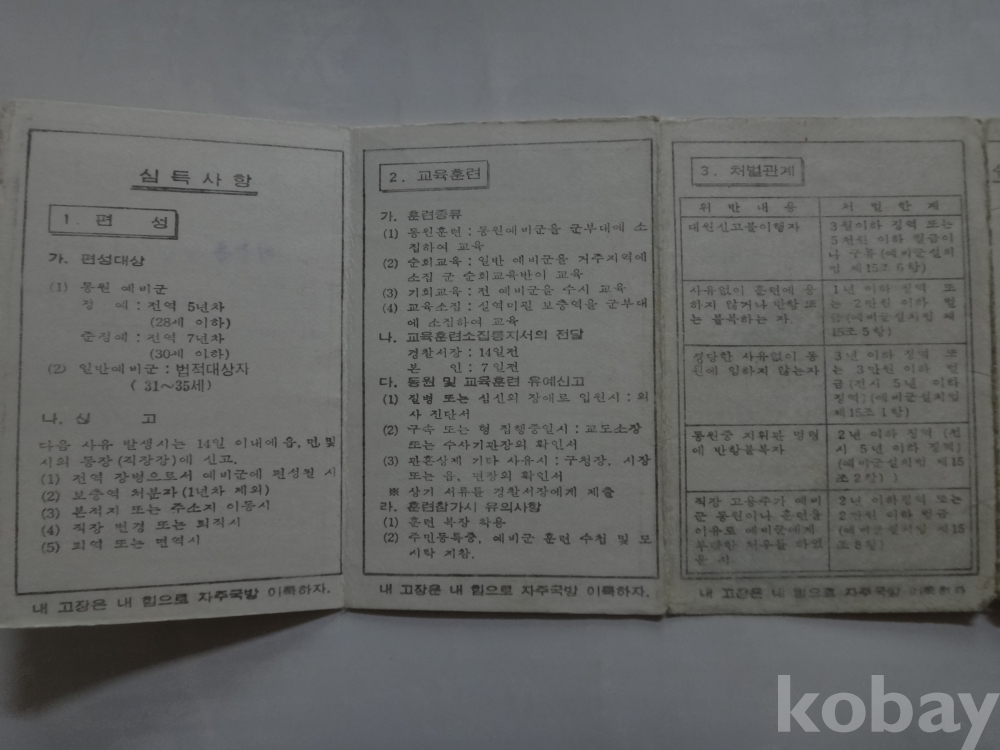 심득사항
1. 편 성
가. 편성대상
(1) 동원 예비군
정 예 : 전역 5년차
(28세 이하)
준정예 : 전역 7년차
(30세 이하)
(2) 일반예비군 : 법적대상자
(31~35세)
나. 신 고
다음 사유 발생시는 14일 이내에 읍, 면, 및
시의 동장 (직장장)에 신고.
(1) 전역 장병으로서 예비군에 편성될 시
(2) 보충역 처분자 (1년차 제외)
(3) 본적지 또는 주소지 이동시
(4) 직장 변경 또는 퇴직시
(5) 퇴역 또는 면역시
내 고장은 내 힘으로 자주국방 이룩하자.
2. 교육훈련
가. 훈련종류
(1) 동원훈련 : 동원예비군을 군부대에 소
집하여 교육
(2) 순회교육 : 일반 예비군을 거주지역에
소집 군 순회교육반이 교육
(3) 기회교육 : 전 예비군을 수시 교육
(4) 교육소집 : 실역미필 보충역을 군부대
에 소집하여 교육
나. 교육훈련소집통지서의 전달
경찰서장 : 14일전
본 인 : 7일전
다. 동원 및 교육훈련 유예신고
(1) 질병 또는 심신의 장애로 입원시 : 의
사 진단서
(2) 구속 또는 형 집행중일시 : 교도소장
또는 수사기관장의 확인서
(3) 관혼상제 기타 사유시 : 구청장, 시장
또는 읍, 면장의 확인서
※ 상기 서류를 경찰서장에게 제출
라. 훈련참가시 유의사항
(1) 훈련 복장 착용
(2) 주민등록증, 예비군 훈련 수첩 및 모
시락 지참.
내 고장은 내 힘으로 자주국방 이룩하자.
3. 처벌관계
위 반 내 용 처 벌 한 계
대원신고불이행자 3월이하 징역 또는
5천원 이하 벌금이
나 구류 (예비군설치
법 제15조 6항)
사유없이 훈련에 응 1년 이하 징역 또
하지 않거나 반항 또 는 2만원 이하 벌
는 불복하는 자. 금 (예비군설치법 제
15조 5항)
정당한 사유없이 동 3년 이하 징역 또
원에 임하지 않는자 는 3만원 이하 벌
금 (전시 5년 이하
징역) (예비군설치법
제15조 1항)
동원중 지휘관 명령 2년 이하 징역 (전
에 반항불복자 시 5년 이하 징역)
(예비군설치법 제15
조 2항)
직장 고용주가 예비 2년 이하징역 또는
군 동원이나 훈련을 2만원 이하 벌금
이유로 예비군에게 (예비군설치법 제15
부당한 처우를 하였 조 8항)
을 시
내 고장은 내 힘으로 자주국방 이룩하자
kobay